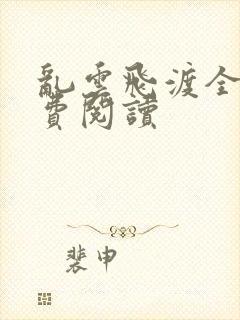 亂雲飛渡全
費閱讀
裴申